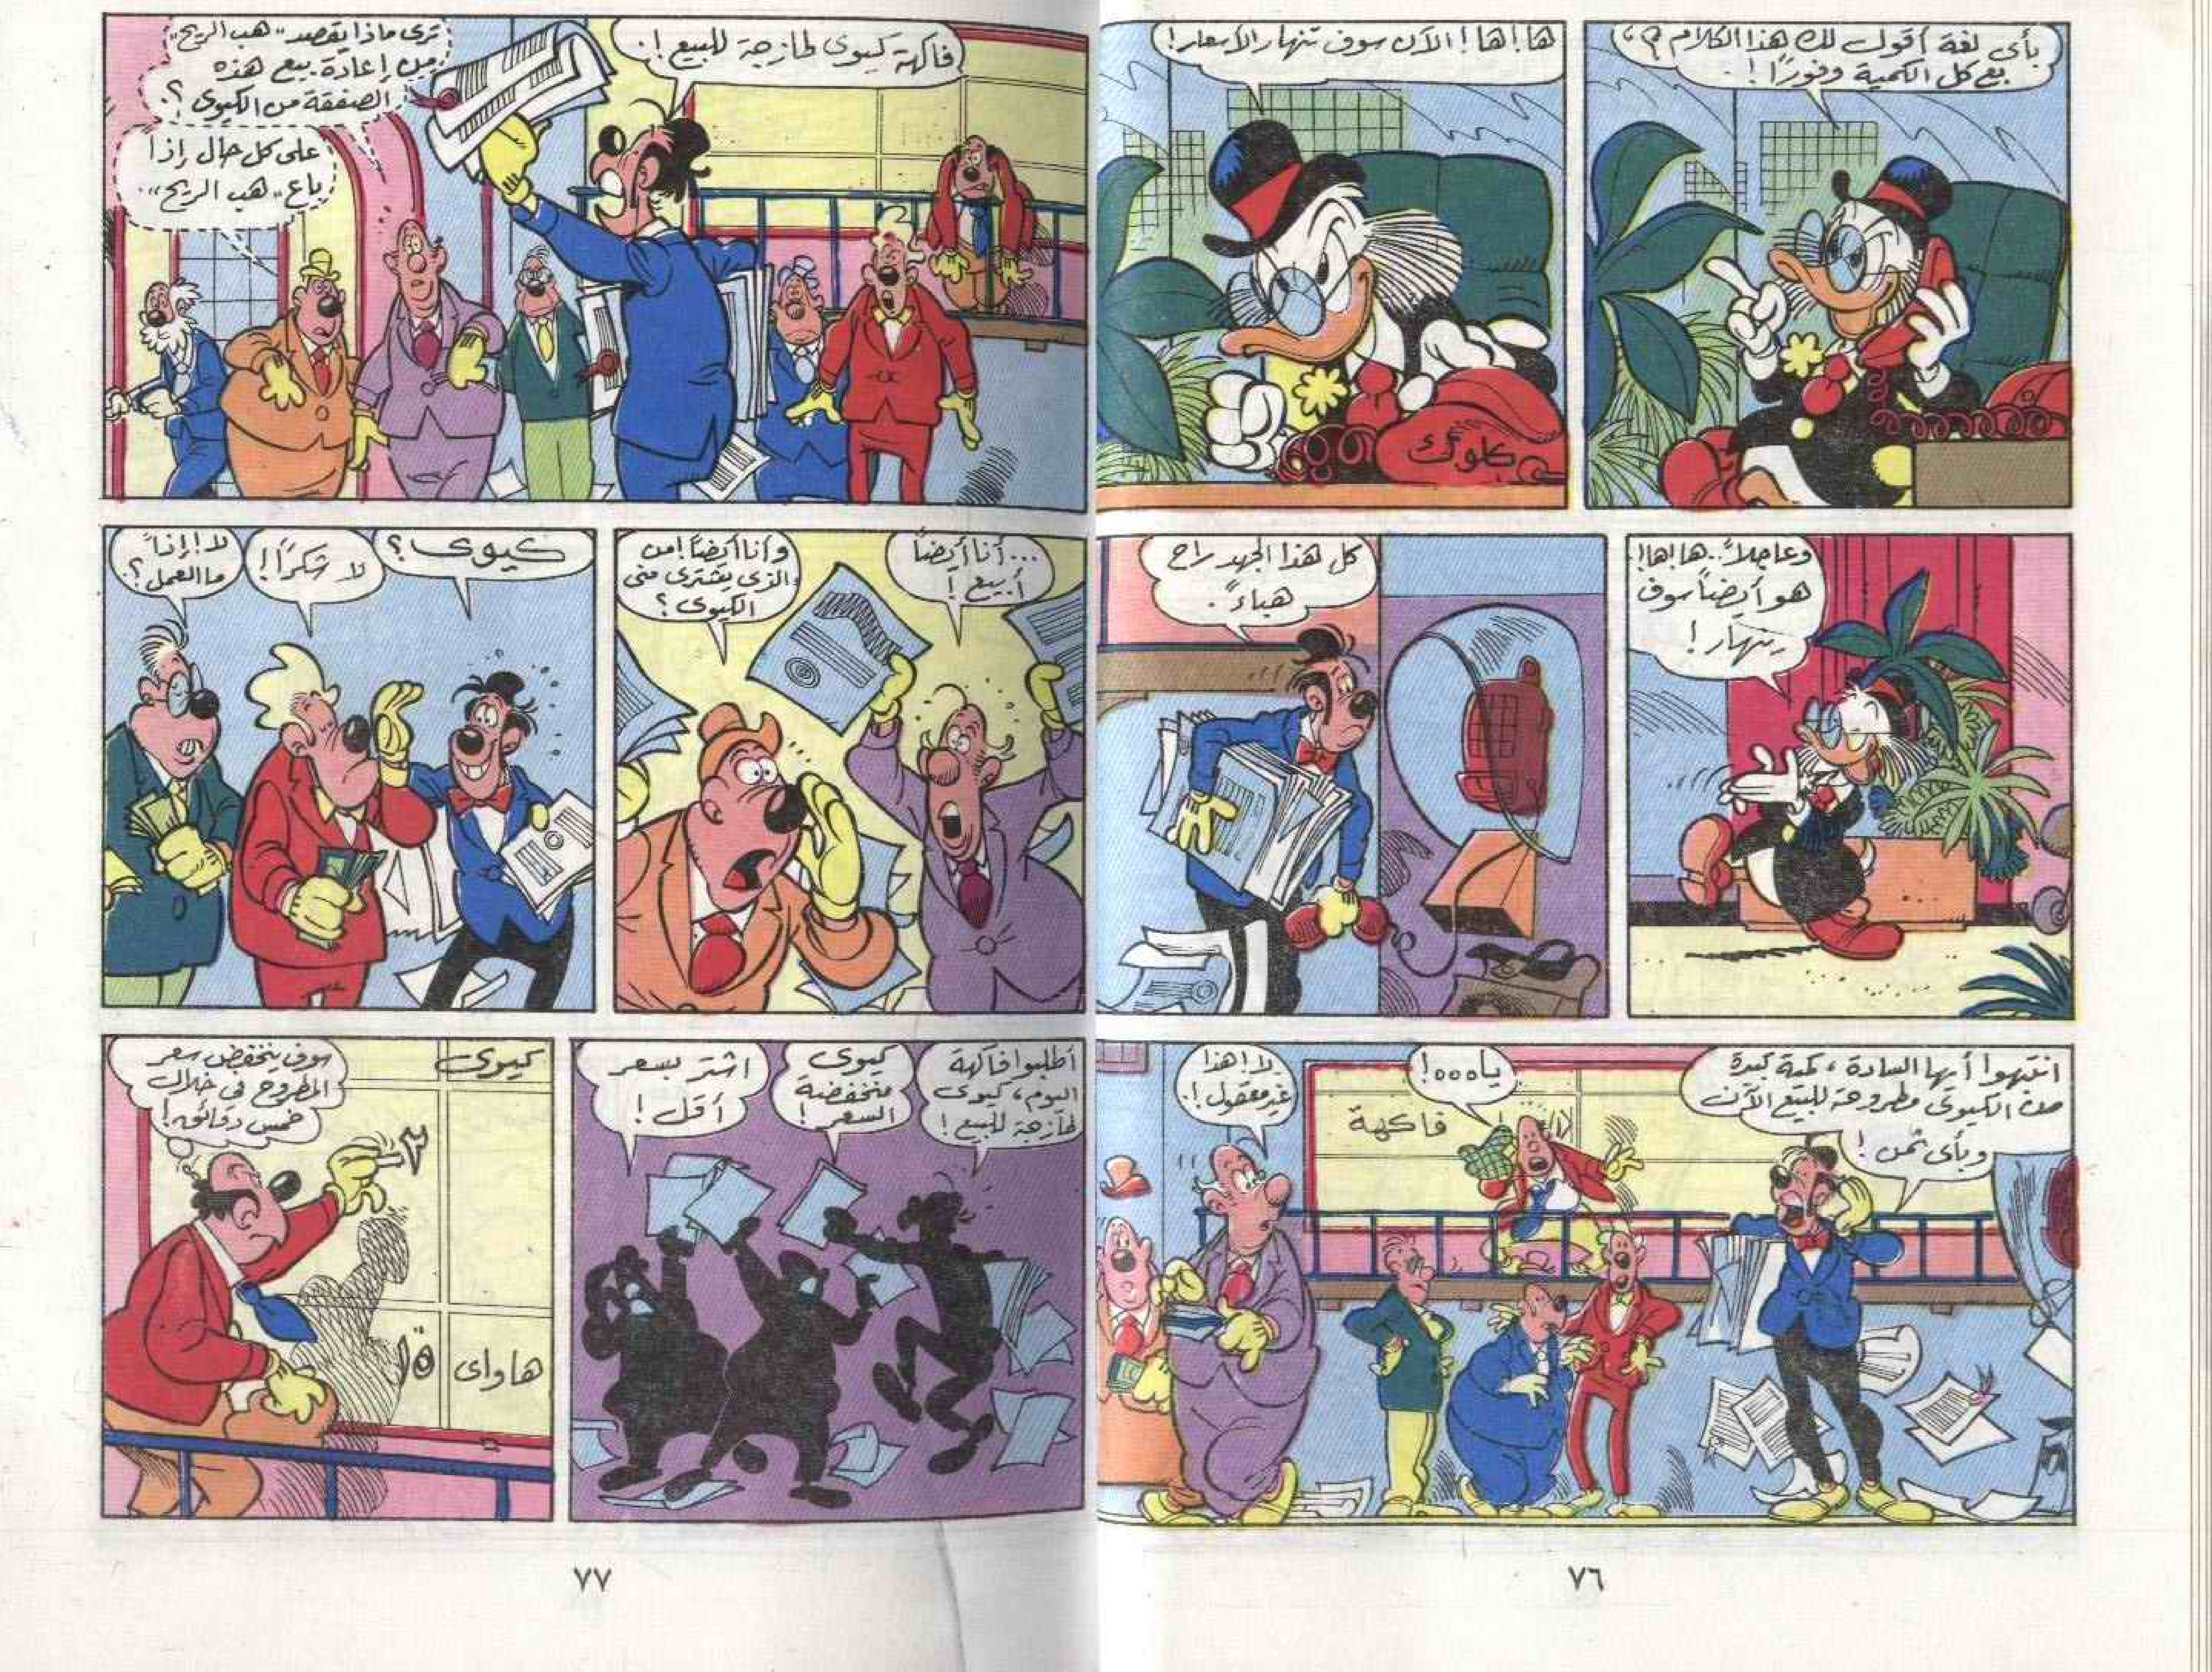 بأى لغة أقول لك هذا الكلام؟،
بع كل الكمية وفورًا!
ها!ها! الآن سوف تنهار الأسعار!
كلوك
وعاجلاً..ها!ها!
هو أيضًا سوف
ينهار!
كل هذا الجهد راح
هباءً.
انتبهوا أيها السادة، كمية كبيرة
من الكيوى مطروحة للبيع الآن
وبأى ثمن!
يا٥٥٥!
فاكهة
لا!هذا
غير معقول!
٧٦
فاكهة كيوى طازجة للبيع!
ترى ماذا يقصد "هب الريح"
من إعادة بيع هذه
الصفقة من الكيوى؟
على كل حال إذا
باع "هب الريح"..
...أنا أيضًا
أبيع!
وأنا أيضًا!من
الذى يشترى منى
الكيوى؟
كيوى؟
لا شكرًا!
لا!إذاً
ما العمل؟
أطلبوا فاكهة
اليوم، كيوى
طازجة للبيع!
كيوى
منخفضة
السعر!
اشتر بسعر
أقل!
سوف ينخفض سعر
المطروح فى خلال
خمس دقائق!
كيوى
٣
هاواى ١٥
٧٧